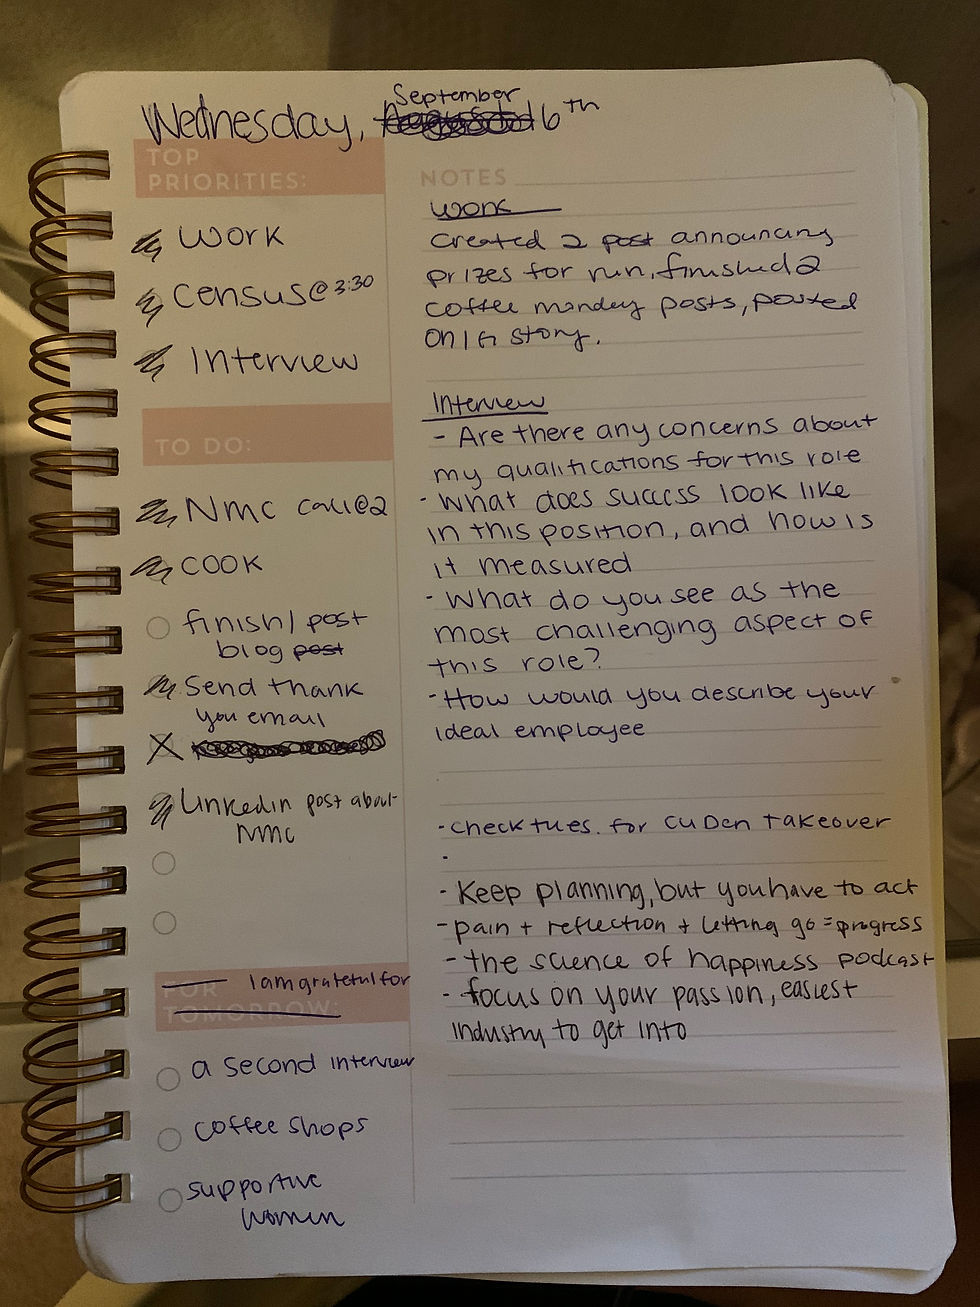 Wednesday, September 6th
TOP
PRIORITIES:
Work
Census @ 3:30
Interview
TO DO:
Nmc call@2
COOK
finish/post
blog post
Send thank
you email
Linkedin post about
Nmc
FOR I am grateful for
TOMORROW:
a second interview
coffee shops
supportive
women
NOTES
Work
Created 2 post announcing
prizes for run, finished 2
coffee monday posts, posted
on IG story.
Interview
- Are there any concerns about
my qualifications for this role
- What does success look like
in this position, and how is
it measured
- What do you see as the
most challenging aspect of
this role?
- How would you describe your
ideal employee
- check tues. for CU Den takeover
-
- Keep planning, but you have to act
- pain + reflection + letting go = progress
- the science of happiness podcast
- focus on your passion, easiest
industry to get into